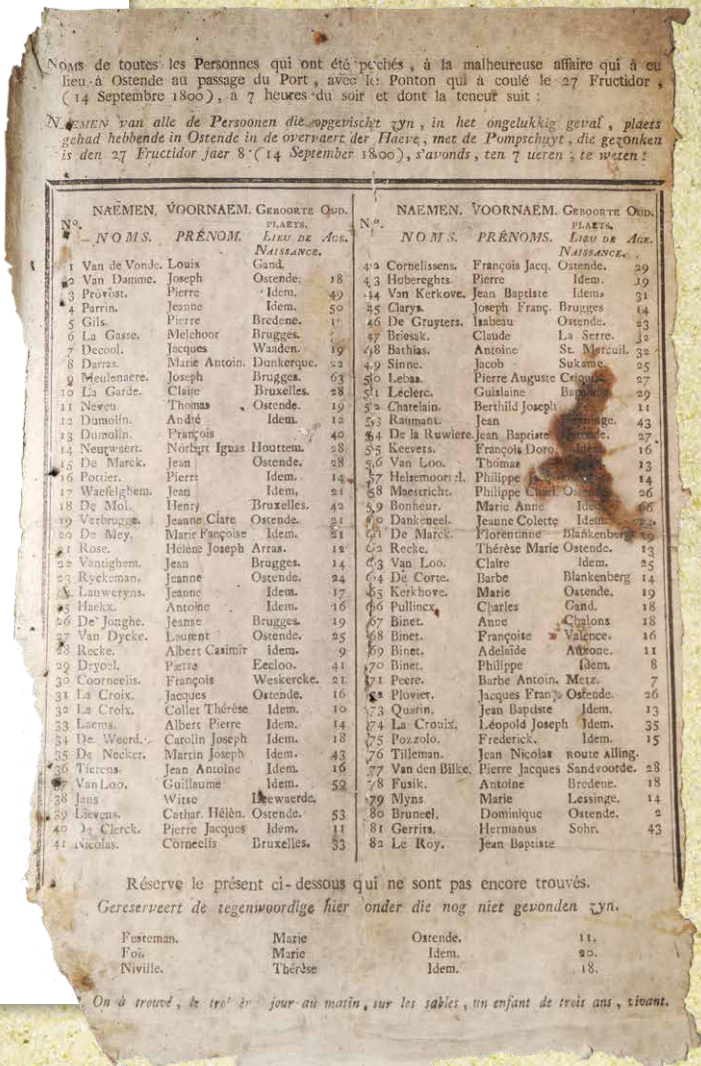 Noms de toutes les Personnes qui ont été pechés , à la malheureuse affaire qui à eu
lieu à Ostende au passage du Port , avec le Ponton qui à coulé le 27 Fructidor ,
( 14 Septembre 1800 ) , à 7 heures du soir et dont la teneur suit :
NAEMEN van alle de Persoonen die opgevischt zyn , in het ongelukkig geval , plaets
gehad hebbende in Ostende in de overvaert der Haeve , met de Pompschuyt , die gezonken
is den 27 Fructidor jaer 8 ( 14 September 1800 ) , s'avonds , ten 7 ueren ; te weten :
NAEMEN. VOORNAEM. GEBOORTE OUD.
N°. PLAETS.
NOMS. PRÉNOM. LIEU DE AGE.
NAISSANCE.
1 Van de Vonde. Louis Gand.
2 Van Damme. Joseph Ostende. 18
3 Provost. Pierre Idem. 49
4 Parrin. Jeanne Idem. 50
5 Gils. Pierre Bredene.
6 La Gasse. Melchoor Brugges.
7 Decool. Jacques Waaden. 19
8 Darras. Marie Antoin. Dunkerque. 22
9 Meulenaere. Joseph Brugges. 63
10 La Garde. Claire Bruxelles. 28
11 Neveu. Thomas Ostende. 19
12 Dumolin. André Idem. 12
13 Dumolin. François 40
14 Neutwaert. Norbert Ignas Houttem. 28
15 De Marck. Jean Ostende. 28
16 Pottier. Pierre Idem. 14
17 Waefelghem. Jean Idem. 21
18 De Mol. Henry Bruxelles. 42
19 Verbrugge. Jeanne Clare Ostende. 21
20 De Mey. Marie Fançoise Idem. 21
21 Rose. Hélène Joseph Arras. 12
22 Vantighem. Jean Brugges. 14
23 Ryckeman. Jeanne Ostende. 24
Lauweryns. Jeanne Idem. 17
25 Haekx. Antoine Idem. 16
26 De Jonghe. Jeanse Brugges. 19
27 Van Dycke. Laurent Ostende. 25
28 Recke. Albert Casimir Idem. 9
29 Dryoel. Pierre Eecloo. 41
30 Coorneelis. François Weskercke. 21
31 La Croix. Jacques Ostende. 16
32 La Croix. Collet Thérése Idem. 10
33 Laems. Albert Pierre Idem. 14
34 De Weerd. Carolin Joseph Idem. 18
35 De Necker. Martin Joseph Idem. 43
36 Tierens. Jean Antoine Idem. 16
37 Van Loo. Guillaume Idem. 52
38 Jans Witse Leewaerde.
39 Lievens. Cathar. Hélèn. Ostende. 53
40 De Clerck. Pierre Jacques Idem. 11
41 Nicolas. Corneelis Bruxelles. 33
NAEMEN. VOORNAEM. GEBOORTE OUD.
N°. PLAETS.
NOMS. PRÉNOMS. LIEU DE AGE.
NAISSANCE.
42 Cornelissens. François Jacq. Ostende. 29
43 Hobereghts. Pierre Idem. 19
44 Van Kerkove. Jean Baptiste Idem. 31
45 Clarys. Joseph Franç. Brugges 14
46 De Gruyters. Isabeau Ostende. 23
47 Briesak. Claude La Serre. 32
48 Bathias. Antoine St. Mercuil. 32
49 Sinne. Jacob Sukame. 25
50 Lebas. Pierre Auguste 27
51 Leclerc. Guislaine 29
52 Chatelain. Berthild Joseph 11
53 Raumant. Jean 43
54 De la Ruwiere. Jean Baptiste 27
55 Keevers. François Doro. Idem. 16
56 Van Loo. Thomas 13
57 Philippe 14
58 Maestricht. Philippe 26
59 Bonheur. Marie Anne Idem. 66
60 Dankeneel. Jeanne Colette Idem.
61 De Marck. Florentinne Blankenberg 19
62 Recke. Thérèse Marie Ostende. 13
63 Van Loo. Claire Idem. 25
64 De Corte. Barbe Blankenberg 14
65 Kerkhove. Marie Ostende. 19
66 Pullincx. Charles Gand. 18
67 Binet. Anne Chalons 18
68 Binet. Françoise Valence. 16
69 Binet. Adelaide Auxone. 11
70 Binet. Philippe Idem. 8
71 Peere. Barbe Antoin. Metz. 7
72 Plovier. Jacques Franç. Ostende. 26
73 Quarin. Jean Baptiste Idem. 13
74 La Crouix. Léopold Joseph Idem. 35
75 Pozzolo. Frederick. Idem. 15
76 Tilleman. Jean Nicolas ROUTE Alling.
77 Van den Bilke. Pierre Jacques Sandvoorde. 28
78 Fusik. Antoine Bredene. 18
79 Myns Marie Lessinge. 14
80 Bruneel. Dominique Ostende. 2
81 Gerrits. Hermanus Sohr. 43
82 Le Roy. Jean Baptiste
Réserve le présent ci-dessous qui ne sont pas encore trouvés.
Gereserveert de tegenwoordige hier onder die nog niet gevonden zyn.
Festeman. Marie Ostende. 11.
Foi. Marie Idem. 20.
Niville. Thérèse Idem. 18.
On à trouvé , le jour au matin , sur les sables , un enfant de trois ans , vivant.